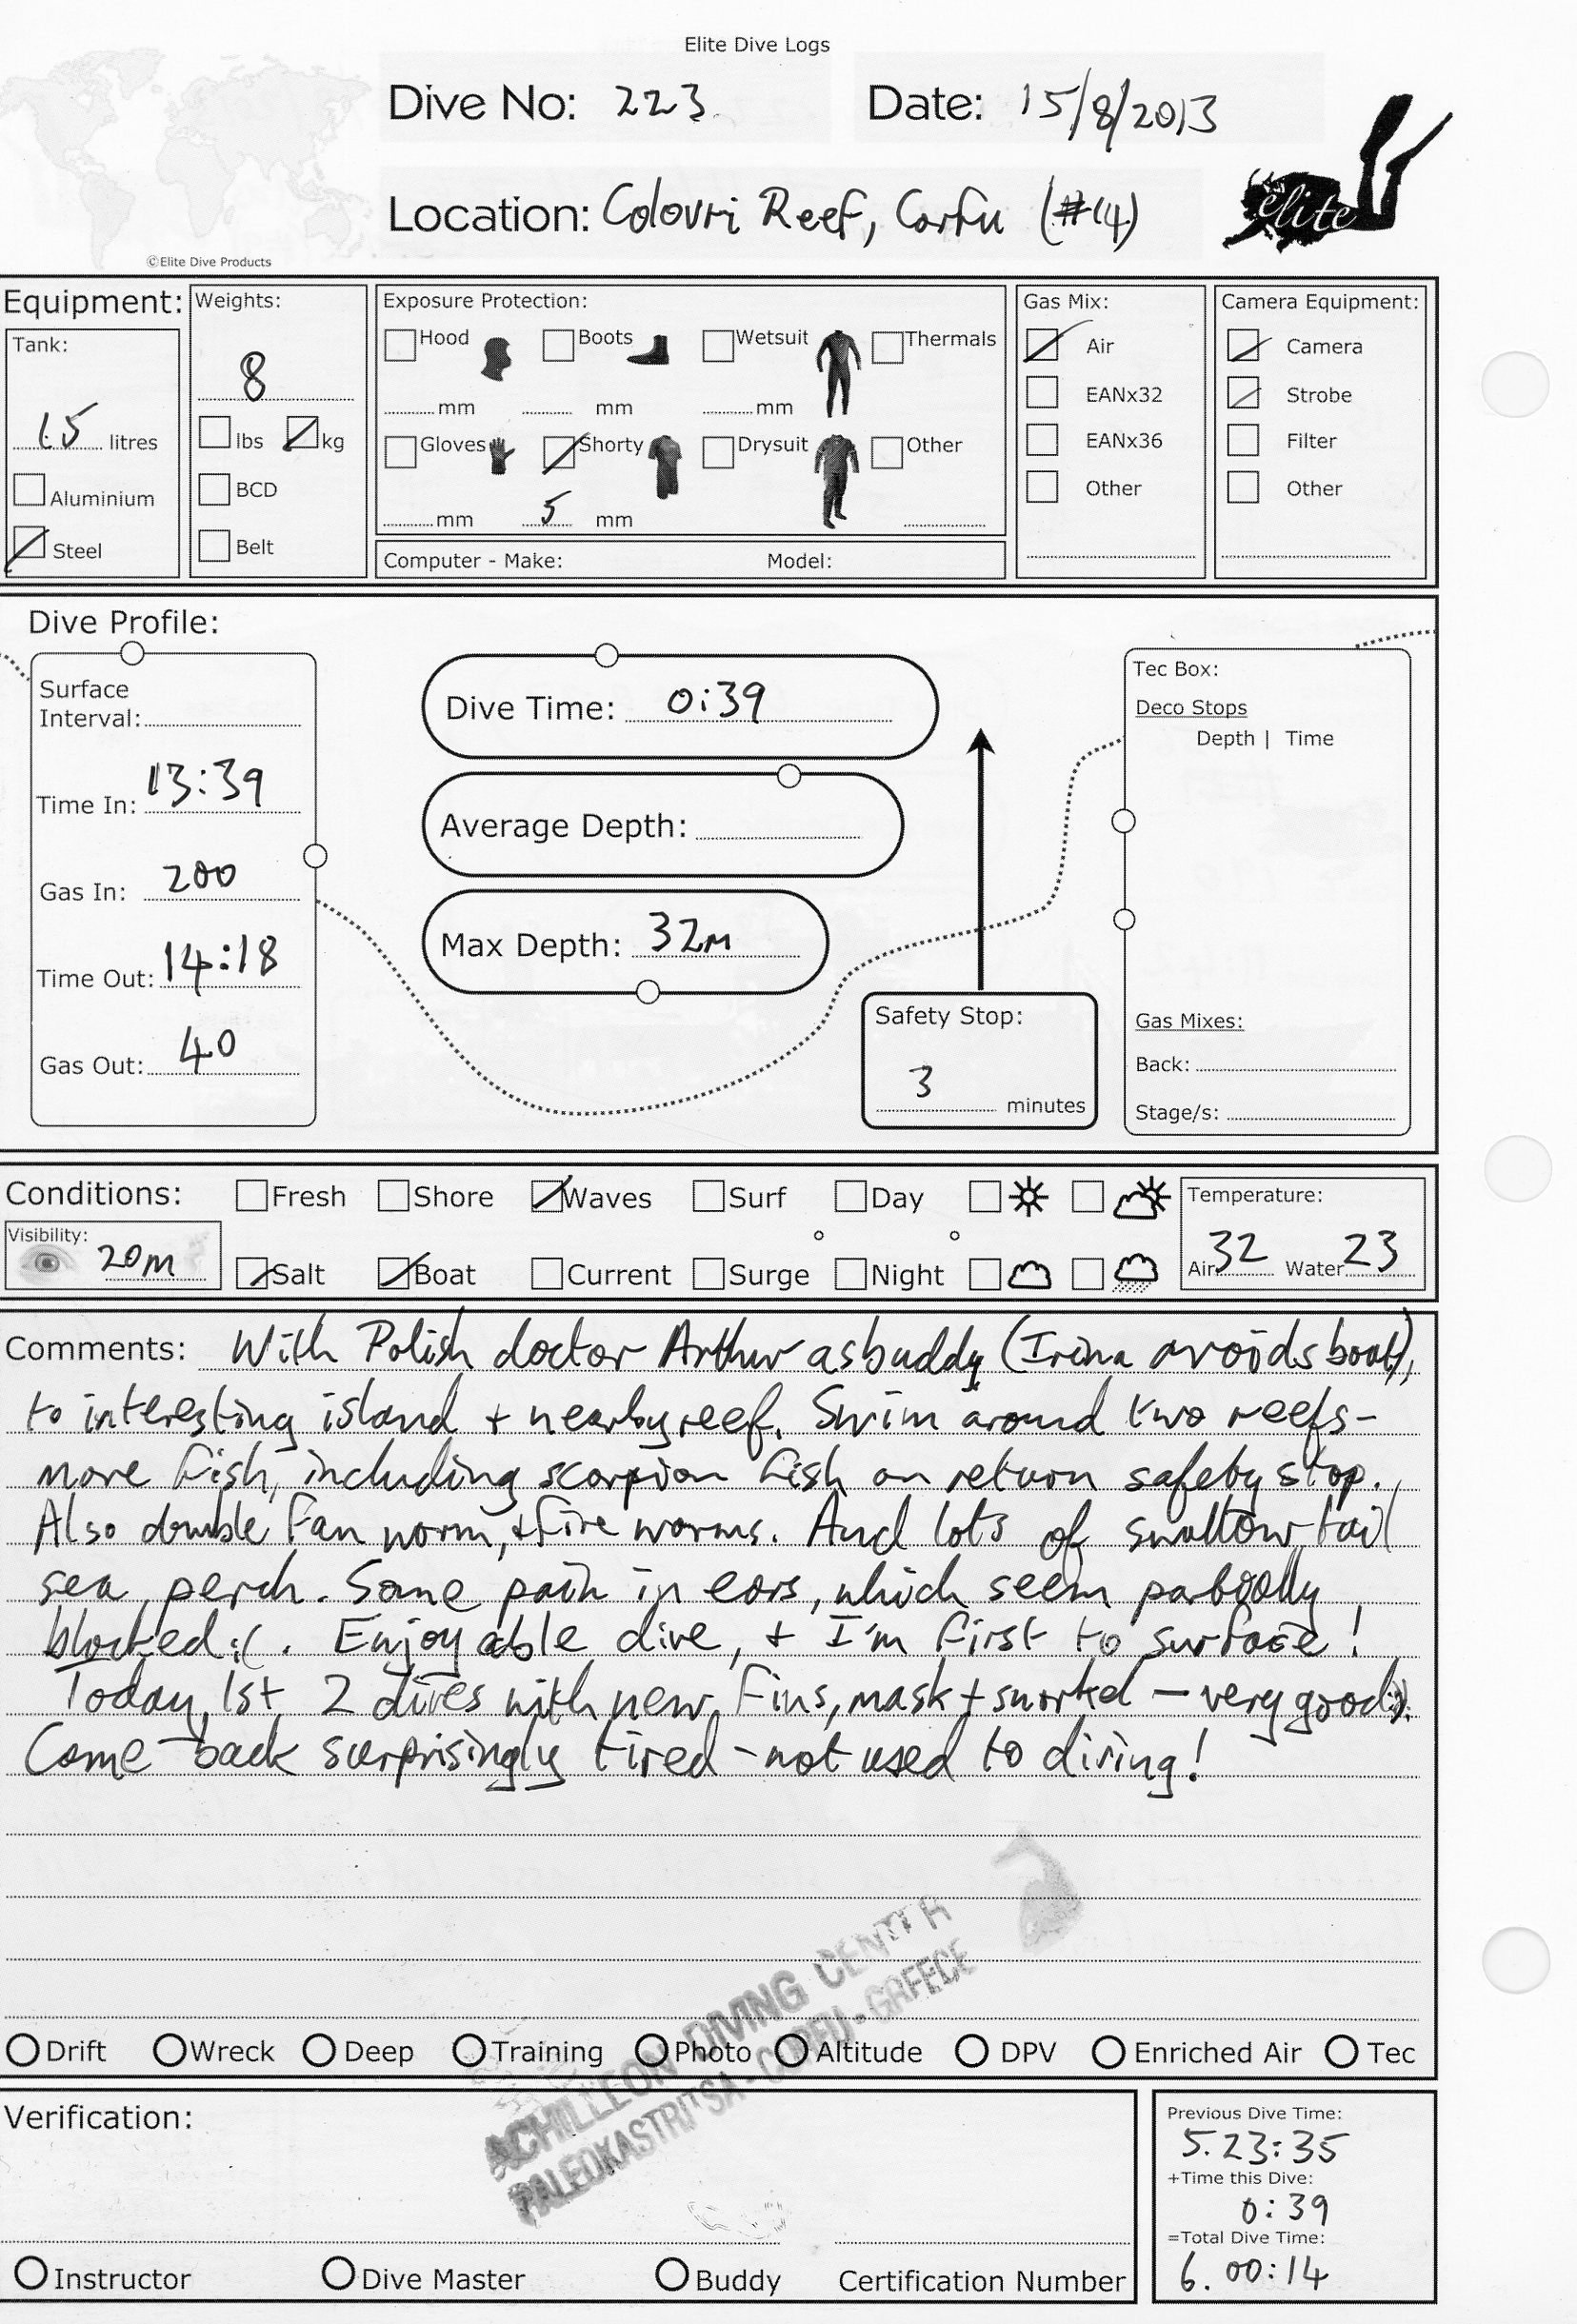 Elite Dive Logs
Dive No: 223
Date: 15/8/2013
Location: Colovri Reef, Corfu (#14)
elite
©Elite Dive Products
Equipment:
Tank:
15 litres
Aluminium
Steel
Weights:
8
lbs kg
BCD
Belt
Exposure Protection:
Hood Boots Wetsuit Thermals
mm mm mm
Gloves Shorty Drysuit Other
mm 5 mm
Computer - Make: Model:
Gas Mix:
Air
EANx32
EANx36
Other
Camera Equipment:
Camera
Strobe
Filter
Other
Dive Profile:
Surface
Interval:
Time In: 13:39
Gas In: 200
Time Out: 14:18
Gas Out: 40
Dive Time: 0:39
Average Depth:
Max Depth: 32m
Safety Stop:
3 minutes
Tec Box:
Deco Stops
Depth | Time
Gas Mixes:
Back:
Stage/s:
Conditions:
Fresh Shore Waves Surf Day
Visibility:
20m
Salt Boat Current Surge Night
Temperature:
Air 32 Water 23
Comments: With Polish doctor Arthur as buddy (Irina avoids boat),
to interesting island + nearby reef. Swim around two reefs -
more fish, including scorpion fish on return safety stop.
Also double fan worm, + fire worms. And lots of swallow tail
sea perch. Some pain in ears, which seem partially
blocked :(. Enjoyable dive, + I'm first to surface!
Today 1st 2 dives with new fins, mask + snorkel - very good :).
Come back surprisingly tired - not used to diving!
ACHILLEON DIVING CENTER
PALEOKASTRITSA - CORFU - GREECE
Drift Wreck Deep Training Photo Altitude DPV Enriched Air Tec
Verification:
Instructor Dive Master Buddy Certification Number
Previous Dive Time:
5.23:35
+Time this Dive:
0:39
=Total Dive Time:
6.00:14